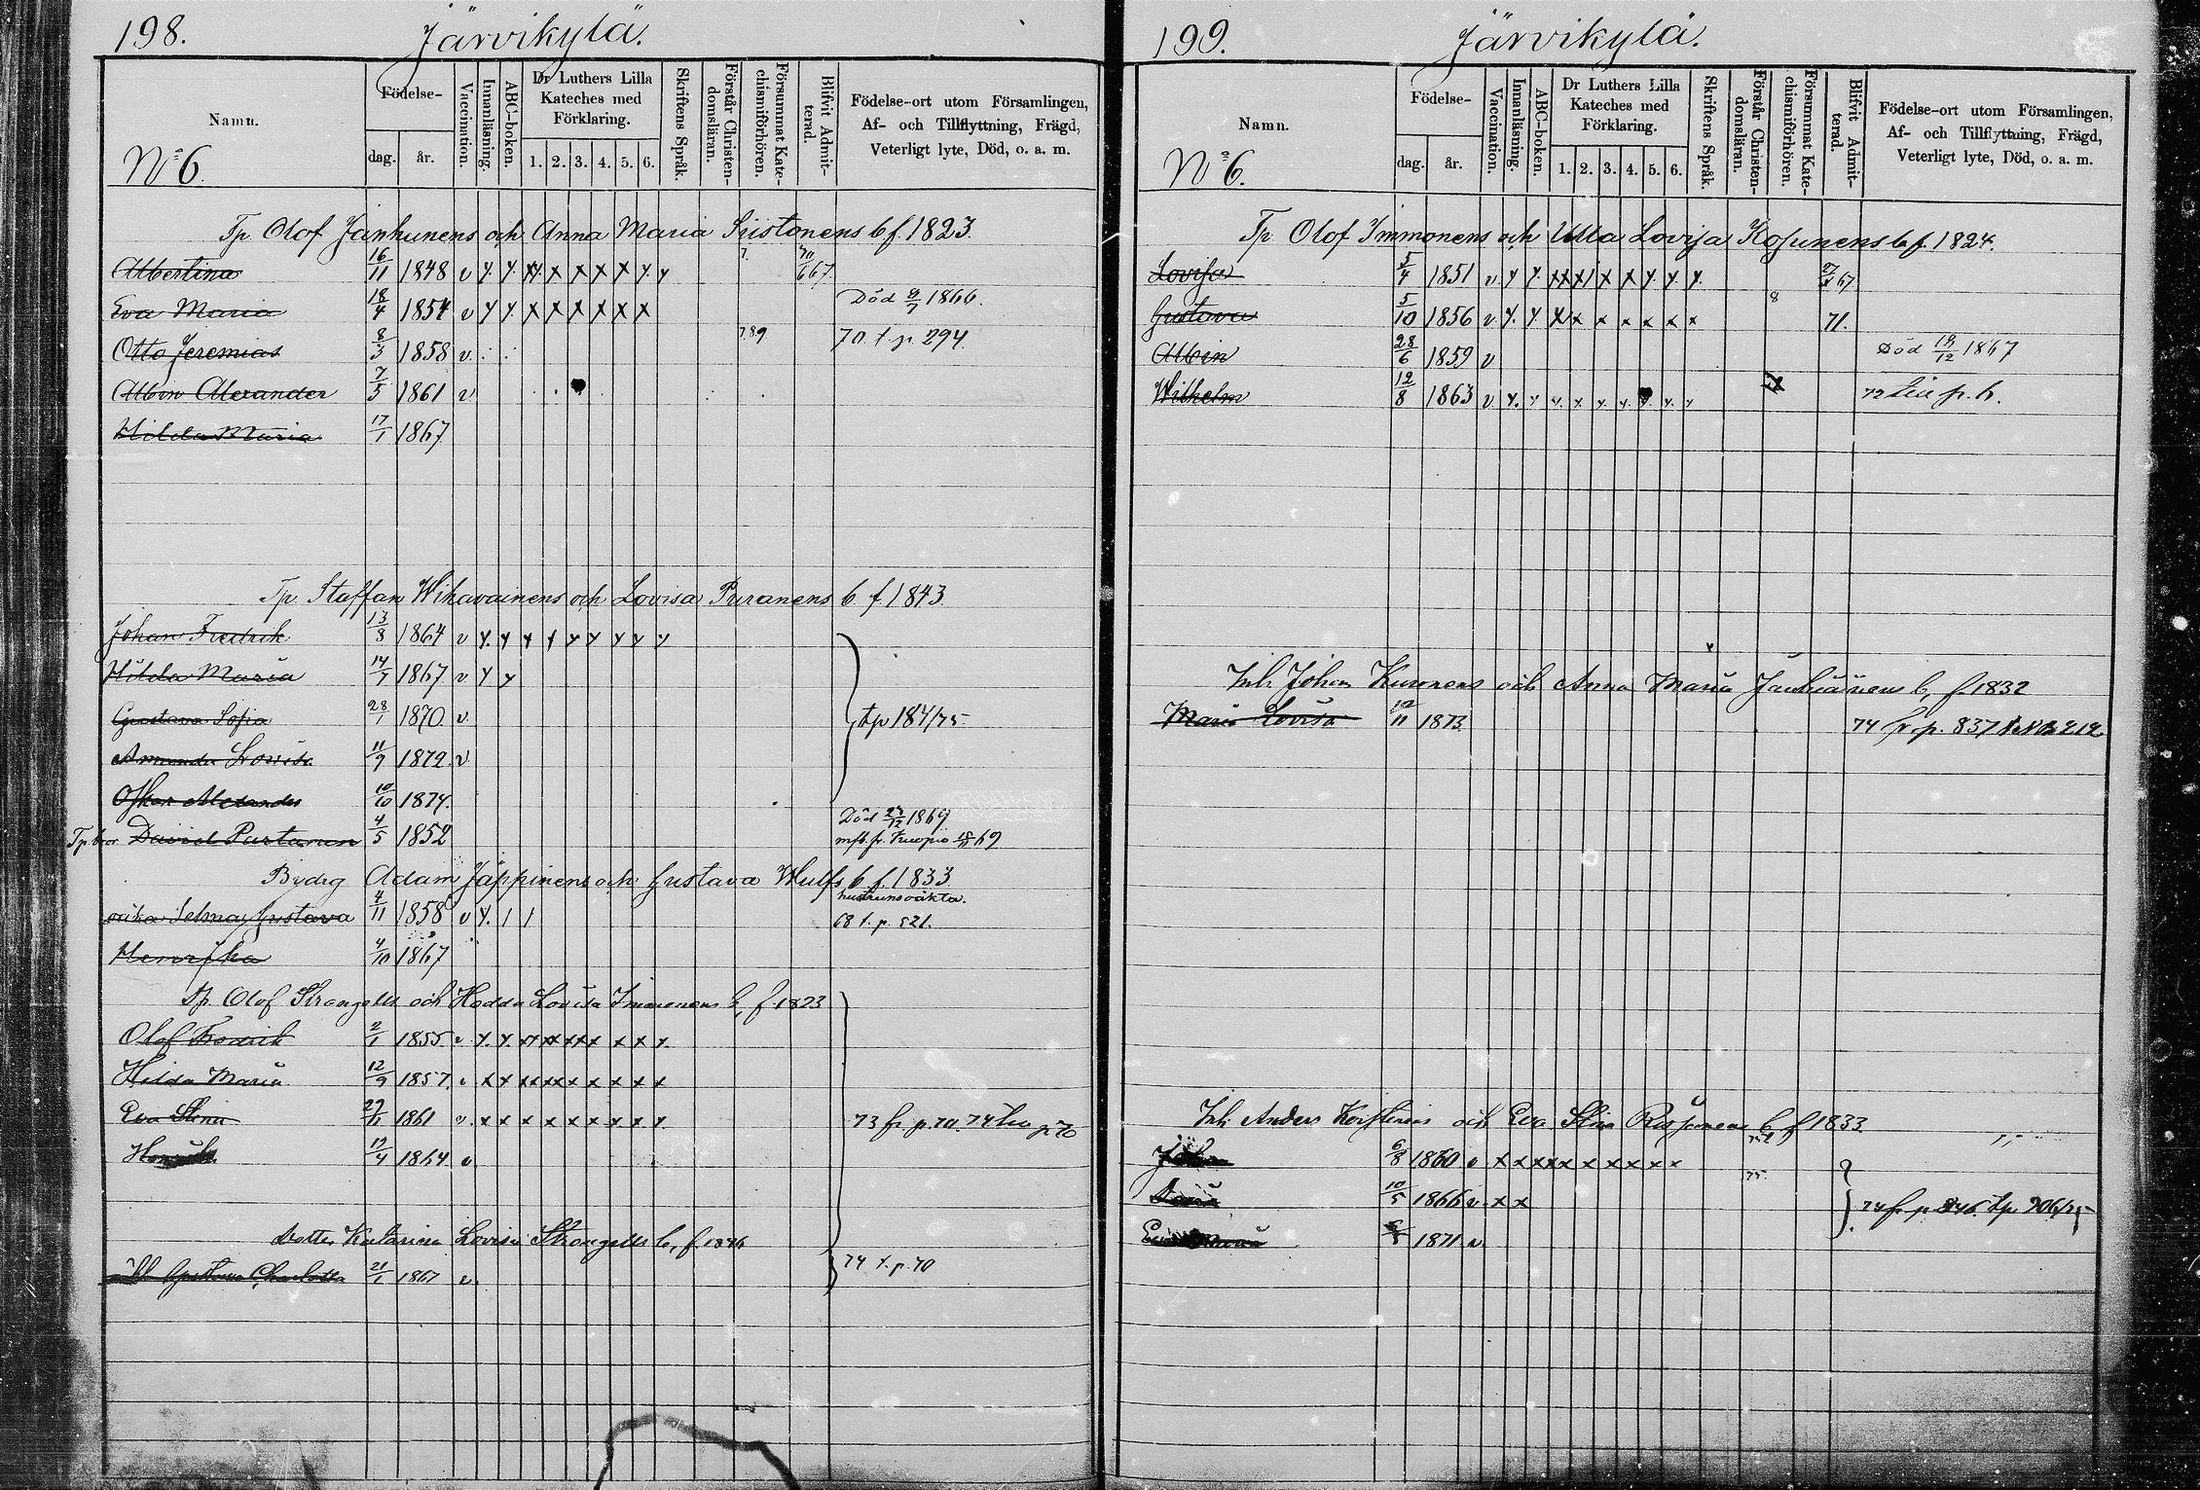 198. Järvikylä.
Namn.
Födelse-
dag. år.
Vaccination.
Innanläsning.
ABC-boken.
Dr Luthers Lilla Kateches med Förklaring.
1. 2. 3. 4. 5. 6.
Skriftens Språk.
Förstår Christendomsläran.
Försummat Katechismiförhören.
Blifvit Admitterad.
Födelse-ort utom Församlingen,
Af- och Tillflyttning, Frägd,
Veterligt lyte, Död, o. a. m.
No 6.
Tp. Olof Janhunens och Anna Maria Siistonens b f. 1823.
Albertina 16/11 1848 v
Eva Maria 18/4 1854 v Död 9/7 1866.
Otto Jeremias 8/3 1858 v. 789 70 t. p. 294.
Albin Alexander 7/5 1861 v
Hilda Maria 17/1 1867
Tp. Staffan Wihavainens och Lovisa Puranens b f. 1843.
Johan Fredrik 13/8 1864 v
Hilda Maria 14/7 1867 v
Gustava Sofia 28/1 1870 v. tp 184/75
Amanda Lovisa 11/9 1872. v
Oskar Alexander 10/10 1874.
David Partanen 4/5 1852 Död 1869
Adam Jäppinens och Gustava Wulfs b f. 1833
hustruns oäkta.
oäkta Selma Gustava 4/11 1858 v 68 t. p. 521.
Henrika 4/10 1867
Tp. Olof Strangells och Hedda Lovisa Immonens b, f. 1823
Olof Fredrik 2/1 1855 v
Hilda Maria 12/9 1857. v
Eva Stina 1861 v. 73 fr. p. 70.
Henrik 1864 v
Dotter Katarina Lovisa Strangells b, f. 1846
Gustava Charlotta 21/1 1867 v. 74 t. p. 70
199. Järvikylä.
Namn.
Födelse-
dag. år.
Vaccination.
Innanläsning.
ABC-boken.
Dr Luthers Lilla Kateches med Förklaring.
1. 2. 3. 4. 5. 6.
Skriftens Språk.
Förstår Christendomsläran.
Försummat Katechismiförhören.
Blifvit Admitterad.
Födelse-ort utom Församlingen,
Af- och Tillflyttning, Frägd,
Veterligt lyte, Död, o. a. m.
No 6.
Tp. Olof Immonens och Ulla Lovisa Kosunens b f. 1824.
Lovisa 5/4 1851 v.
Gustava 5/10 1856 v. 71.
Albin 28/6 1859 v Död 1867
Wilhelm 12/8 1863 v
Inh. Johan Kuronens och Anna Maria b, f. 1832
Maria Lovisa 1873. 74 fr. p. 837
Inh. Anders och Eva Stina b f 1833.
Johan 6/8 1860 v
10/5 1866 v. 74 fr. p. 846. tp. 206/75
1871. v